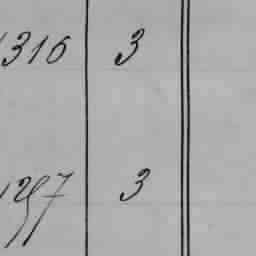 1316 3
1297 3